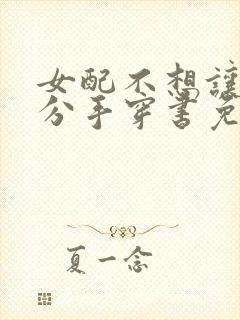 女配不想讓
分手穿書免
夏一念